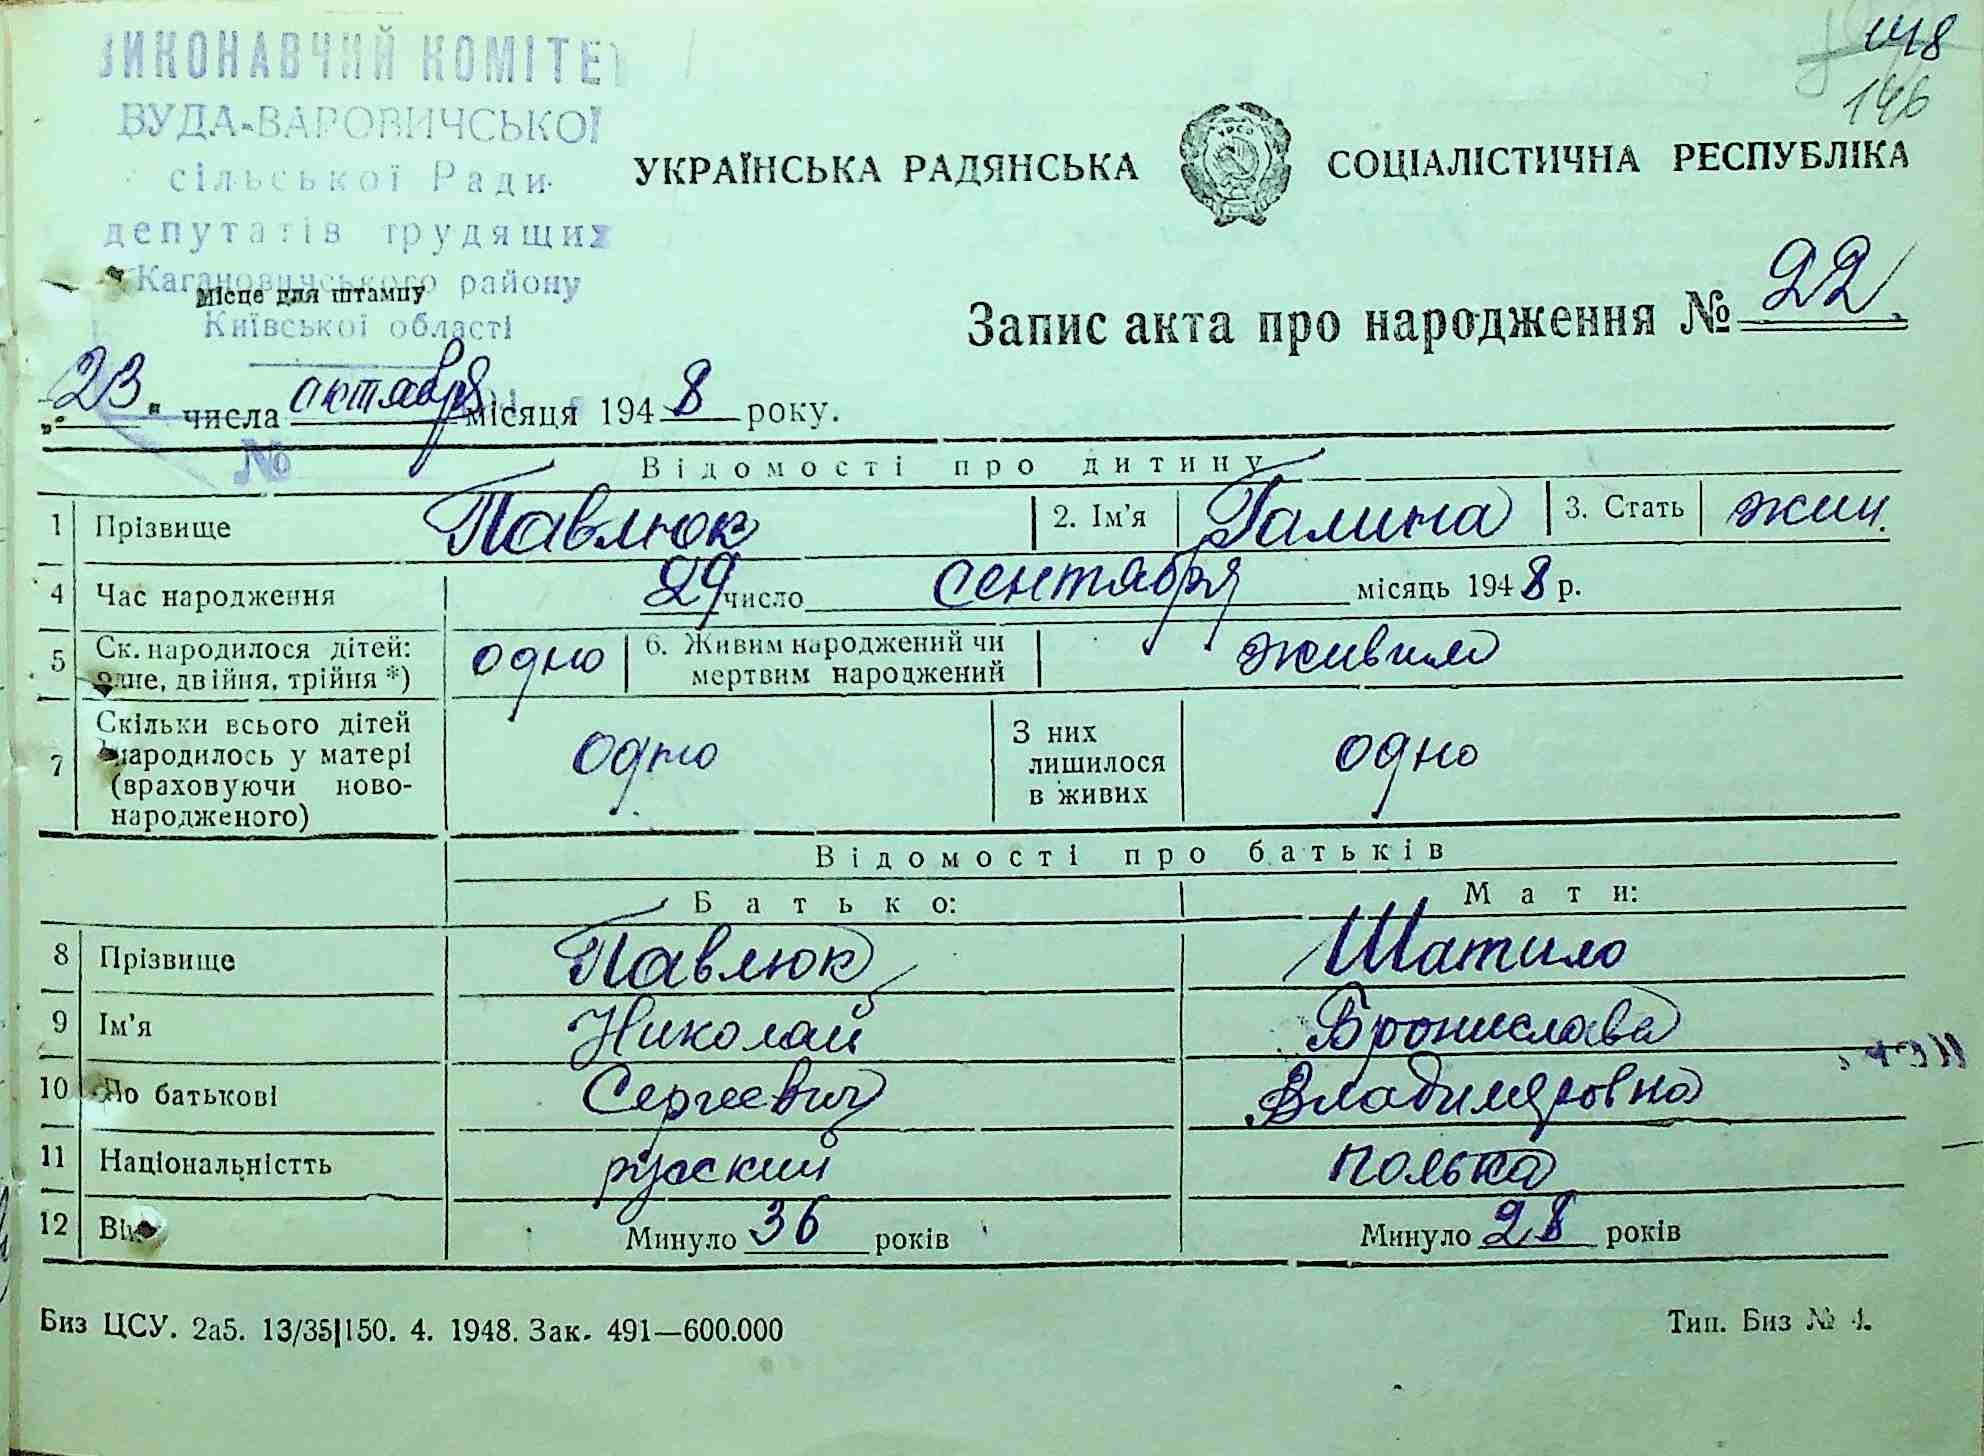 ВИКОНАВЧИЙ КОМІТЕТ
БУДА-ВАРОВИЧСЬКОЇ
сільської Ради
депутатів трудящих
Кагановичського району
Київської області
Місце для штампу
№
148
146
УКРАЇНСЬКА РАДЯНСЬКА СОЦІАЛІСТИЧНА РЕСПУБЛІКА
УРСР
Запис акта про народження № 22
„23" числа октября місяця 1948 року.
Відомості про дитину
1 Прізвище Павлюк 2. Ім'я Галина 3. Стать жин.
4 Час народження 29 число сентября місяць 1948 р.
5 Ск. народилося дітей: одне, двійня, трійня *) одно 6. Живим народжений чи мертвим народжений живим
7 Скільки всього дітей народилось у матері (враховуючи ново-народженого) одно З них лишилося в живих одно
Відомості про батьків
Батько: Мати:
8 Прізвище Павлюк Шатило
9 Ім'я Николай Бронислава
10 По батькові Сергеевич Владимировна
11 Національністть русский полька
12 Вік Минуло 36 років Минуло 28 років
Биз ЦСУ. 2а5. 13/35|150. 4. 1948. Зак. 491—600.000 Тип. Биз № 4.